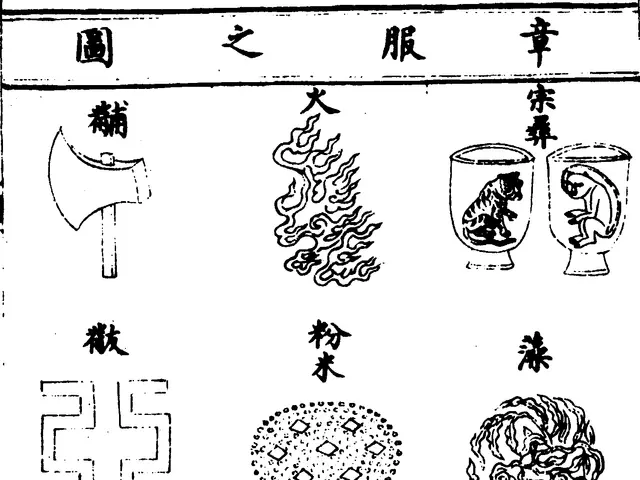 章服之圖
宗彝
火
黼
藻
粉米
黻